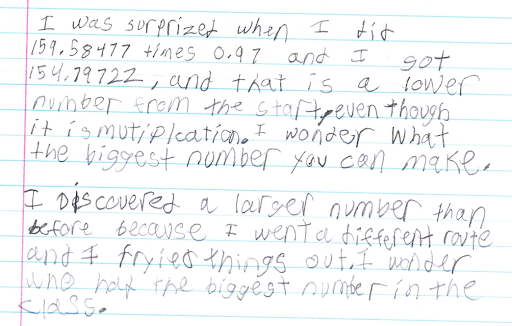 I was surprized when I did
159.58477 times 0.97 and I got
154.79722, and that is a lower
number from the start, even though
it is mutiplcation. I wonder what
the biggest number you can make.
I Discovered a larger number than
before because I went a different route
and I fryied things out. I wonder
who had the biggest number in the
class.